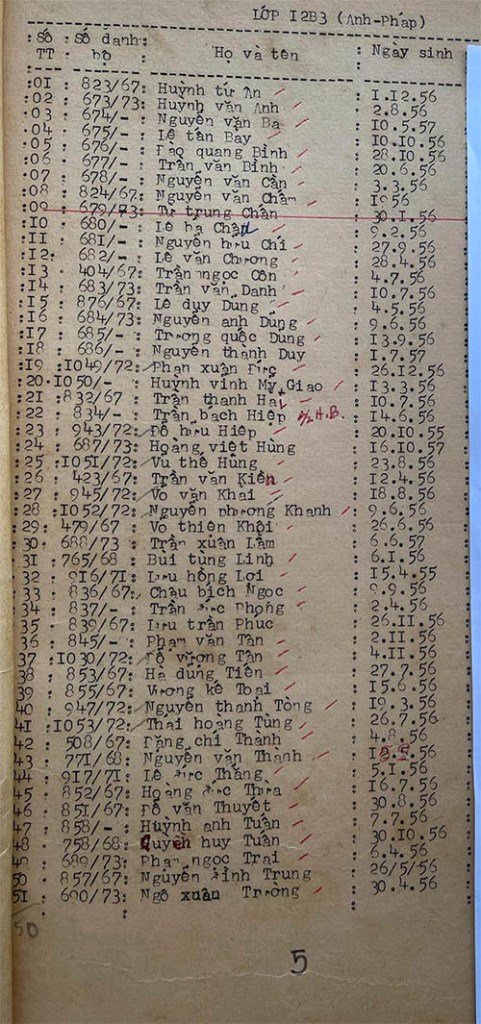 LỚP I2B3 (Anh-Pháp)
:Số : Số danh: Họ và tên : Ngày sinh
TT : bộ :
:OI : 823/67: Huỳnh từ An : I.I2.56
:02 : 673/73: Huỳnh văn Anh : 2.8.56
:03 : 674/- : Nguyễn văn Ba : I0.5.57
:04 : 675/- : Lê tấn Bay : I0.I0.56
:05 : 676/- : Đào quang Bình : 28.I0.56
:06 : 677/- : Trần văn Bình : 20.6.56
:07 : 678/- : Nguyễn văn Cần : 3.3.56
:08 : 824/67: Nguyễn văn Chăm : 56
:09 : 679/73: Từ trung Chấn : 30.I.56
:I0 : 680/- : Lê bá Chẩu : 9.2.56
:II : 68I/- : Nguyễn hữu Chí : 27.9.56
:I2: 682/- : Lê văn Chương : 28.4.56
:I3 : 404/67: Trần ngọc Côn : 4.7.56
:I4 : 683/73: Trần văn Danh : I0.7.56
:I5 : 876/67: Lê duy Dũng : 4.5.56
:I6 : 684/73: Nguyễn anh Dũng : 9.6.56
:I7 : 685/- : Trương quốc Dung : I3.9.56
:I8 : 686/- : Nguyễn thanh Duy : I.7.57
:I9 :I049/72: Phan xuân Đức : 26.I2.56
:20.I050/- : Huỳnh vinh Mỹ Giao : I3.3.56
:2I :832/67 : Trần thanh Hai : I0.7.56
:22 : 834/- : Trần bạch Hiệp H.B. : I4.6.56
:23 : 943/72: Đỗ hữu Hiệp : 20.I0.55
:24 : 687/73: Hoàng việt Hùng : I6.I0.57
:25 :I05I/72: Vũ thế Hùng : 23.8.56
:26 : 423/67: Trần văn Kiên : I2.4.56
:27 : 945/72: Võ văn Khai : I8.8.56
:28 :I052/72: Nguyễn phương Khanh : 9.6.56
:29: 479/67 : Võ thiện Khôi : 26.6.56
:30. 688/73 : Trần xuân Lãm : 6.6.57
:3I :765/68 : Bùi tùng Linh : 6.I.56
:32 : 9I6/7I: Lưu hồng Lợi : I5.4.55
:33 : 836/67: Châu bích Ngọc : 9.9.56
:34 : 837/- : Trần đức Phong : 2.4.56
:35 : 839/67: Lưu trần Phúc : 26.II.56
:36 : 845/- : Phạm văn Tân : 2.II.56
:37 :I030/72: Đỗ vượng Tân : 4.II.56
:38 : 853/67: Hà dung Tiên : 27.7.56
:39 : 855/67: Vương kế Toại : I5.6.56
:40 : 947/72: Nguyễn thanh Tòng : I9.3.56
:4I :I053/72: Thái hoàng Tùng : 26.7.56
:42 : 508/67: Đặng chí Thành : 4.8.56
:43 : 77I/68: Nguyễn văn Thanh : I2.5.56
:44 : 9I7/7I: Lê đức Thắng : 5.I.56
:45 : 852/67: Hoàng đức Thừa : I6.7.56
:46 : 85I/67: Đỗ văn Thuyết : 30.8.56
:47 : 858/- : Huỳnh anh Tuấn : 7.7.56
:48 : 758/68: Quyền huy Tuấn : 30.I0.56
:49 : 689/73: Phan ngọc Trai : 6.4.56
:50 : 857/67: Nguyễn đình Trung : 26/5/56
:5I : 690/73: Ngô xuân Trường : 30.4.56
50
5